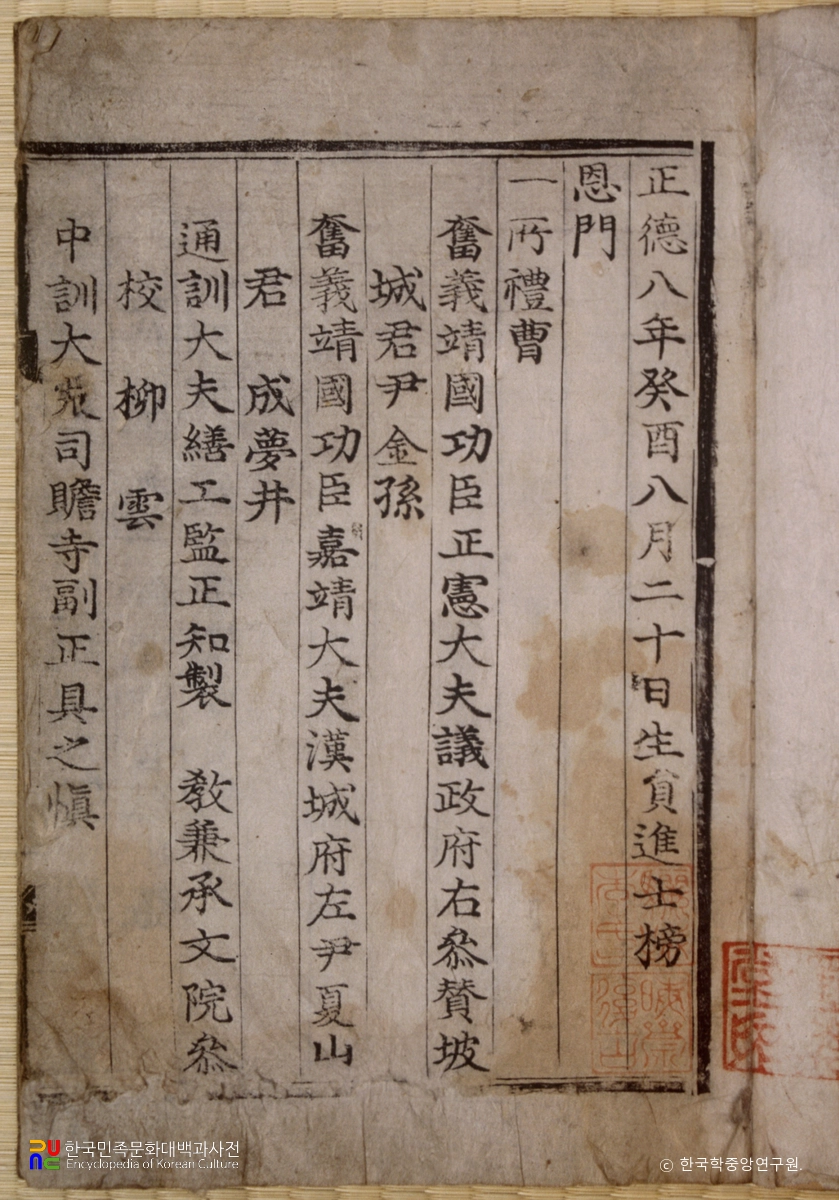 正德八年癸酉八月二十日生貟進士榜
恩門
一所禮曹
奮義靖國功臣正憲大夫議政府右叅賛坡
城君尹金孫
奮義靖國功臣嘉靖大夫漢城府左尹夏山
君 成夢井
通訓大夫繕工監正知製 敎兼承文院叅
校 柳 雲
中訓大夫司贍寺副正具之愼
한국민족문화대백과사전
Encyclopedia of Korean Culture
© 한국학중앙연구원.